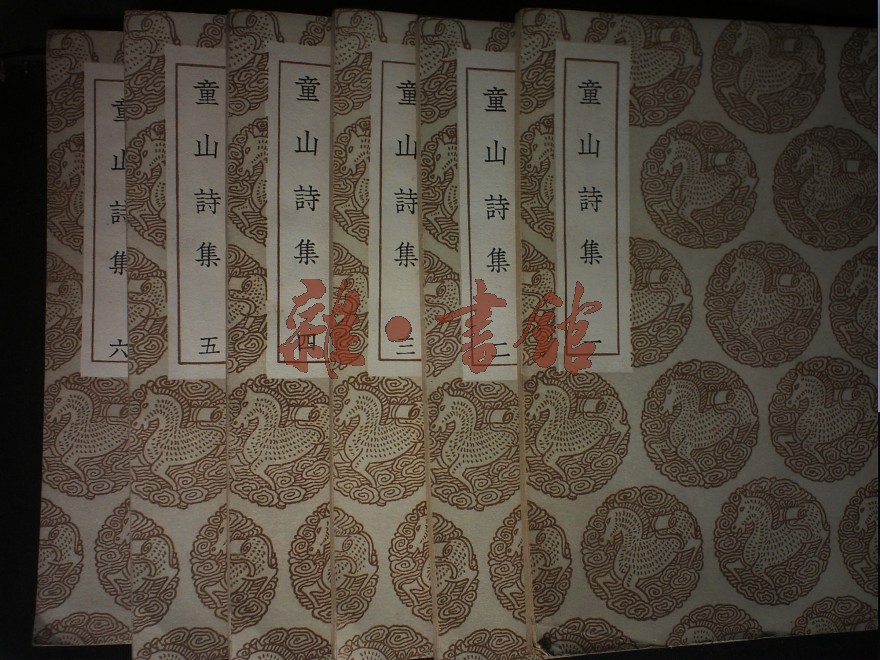 童山詩集 一
童山詩集 二
童山詩集 三
童山詩集 四
童山詩集 五
童山詩集 六
雜·書館